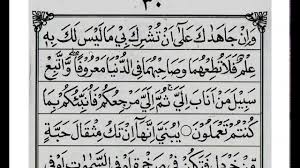 ٣٠
وَاِنْ جَاهَدٰكَ عَلٰٓى اَنْ تُشْرِكَ بِيْ مَا لَيْسَ لَكَ بِهٖ
عِلْمٌ فَلَا تُطِعْهُمَا وَصَاحِبْهُمَا فِي الدُّنْيَا مَعْرُوْفًا وَّاتَّبِعْ
سَبِيْلَ مَنْ اَنَابَ اِلَيَّ ثُمَّ اِلَيَّ مَرْجِعُكُمْ فَاُنَبِّئُكُمْ بِمَا
كُنْتُمْ تَعْمَلُوْنَ يٰبُنَيَّ اِنَّهَآ اِنْ تَكُ مِثْقَالَ حَبَّةٍ
مِّنْ خَرْدَلٍ فَتَكُنْ فِيْ صَخْرَةٍ اَوْ فِي السَّمٰوٰتِ اَوْ فِي